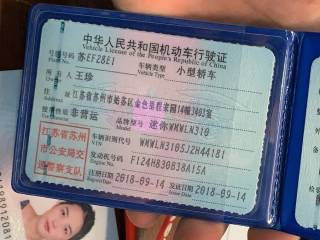 中华人民共和国机动车行驶证
Vehicle License of the People's Republic of China
号牌号码 苏EF28E1 车辆类型 小型轿车
Plate No. Vehicle Type
所有人 王珍
Owner
住址 江苏省苏州市姑苏区金色里程家园14幢3403室
使用性质 非营运 品牌型号 迷你WMWLN310
江苏省苏州
市公安局交
通警察支队
车辆识别代号 WMWLN3105J2H44181
VIN
发动机号码 F124H830B38A15A
Engine No.
注册日期 2018-09-14 发证日期 2018-09-14
Register Date Issue Date